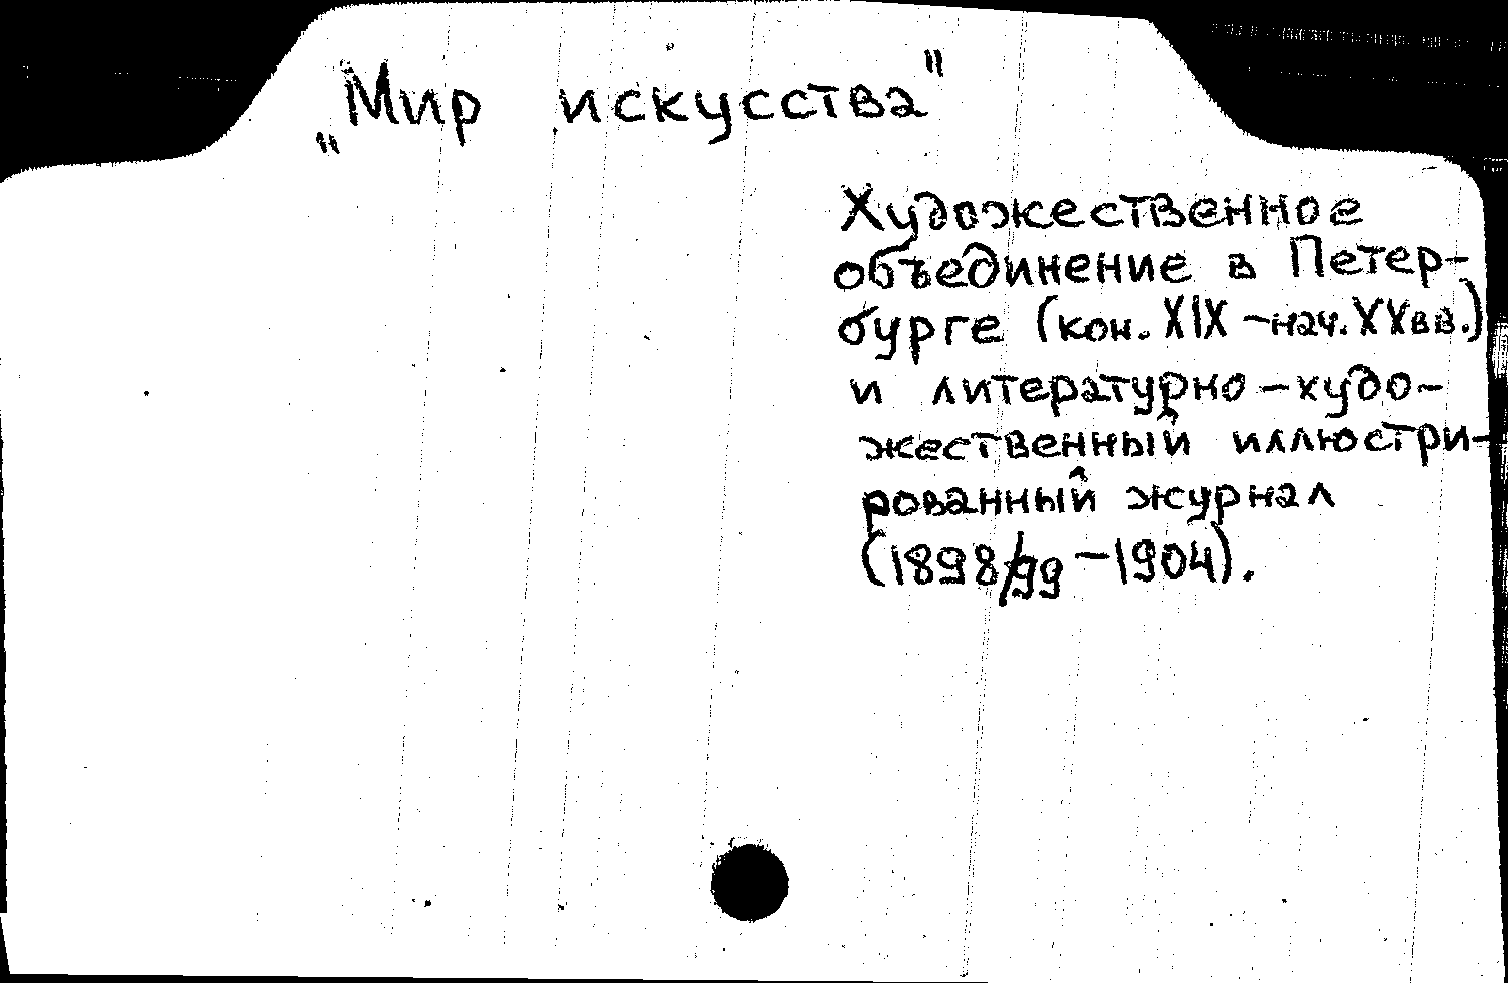 „Мир искусства"
Художественное
объединение в Петер-
бурге (кон. XIX – нач. XX вв.)
и литературно-худо-
жественный иллюстри-
рованный журнал
(1898/99 – 1904).